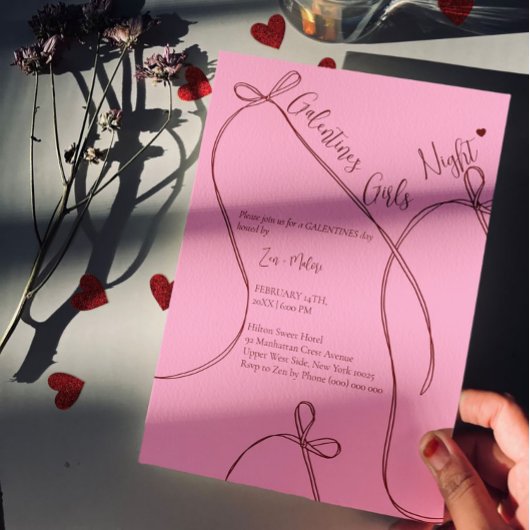 Galentines
Girls
Night
Please join us for a GALENTINES day
hosted by
Zen + Malori
FEBRUARY 14TH,
20XX | 6:00 PM
Hilton Sweet Hotel
92 Manhattan Crest Avenue
Upper West Side, New York 10025
Rsvp to Zen by Phone (000) 000 000